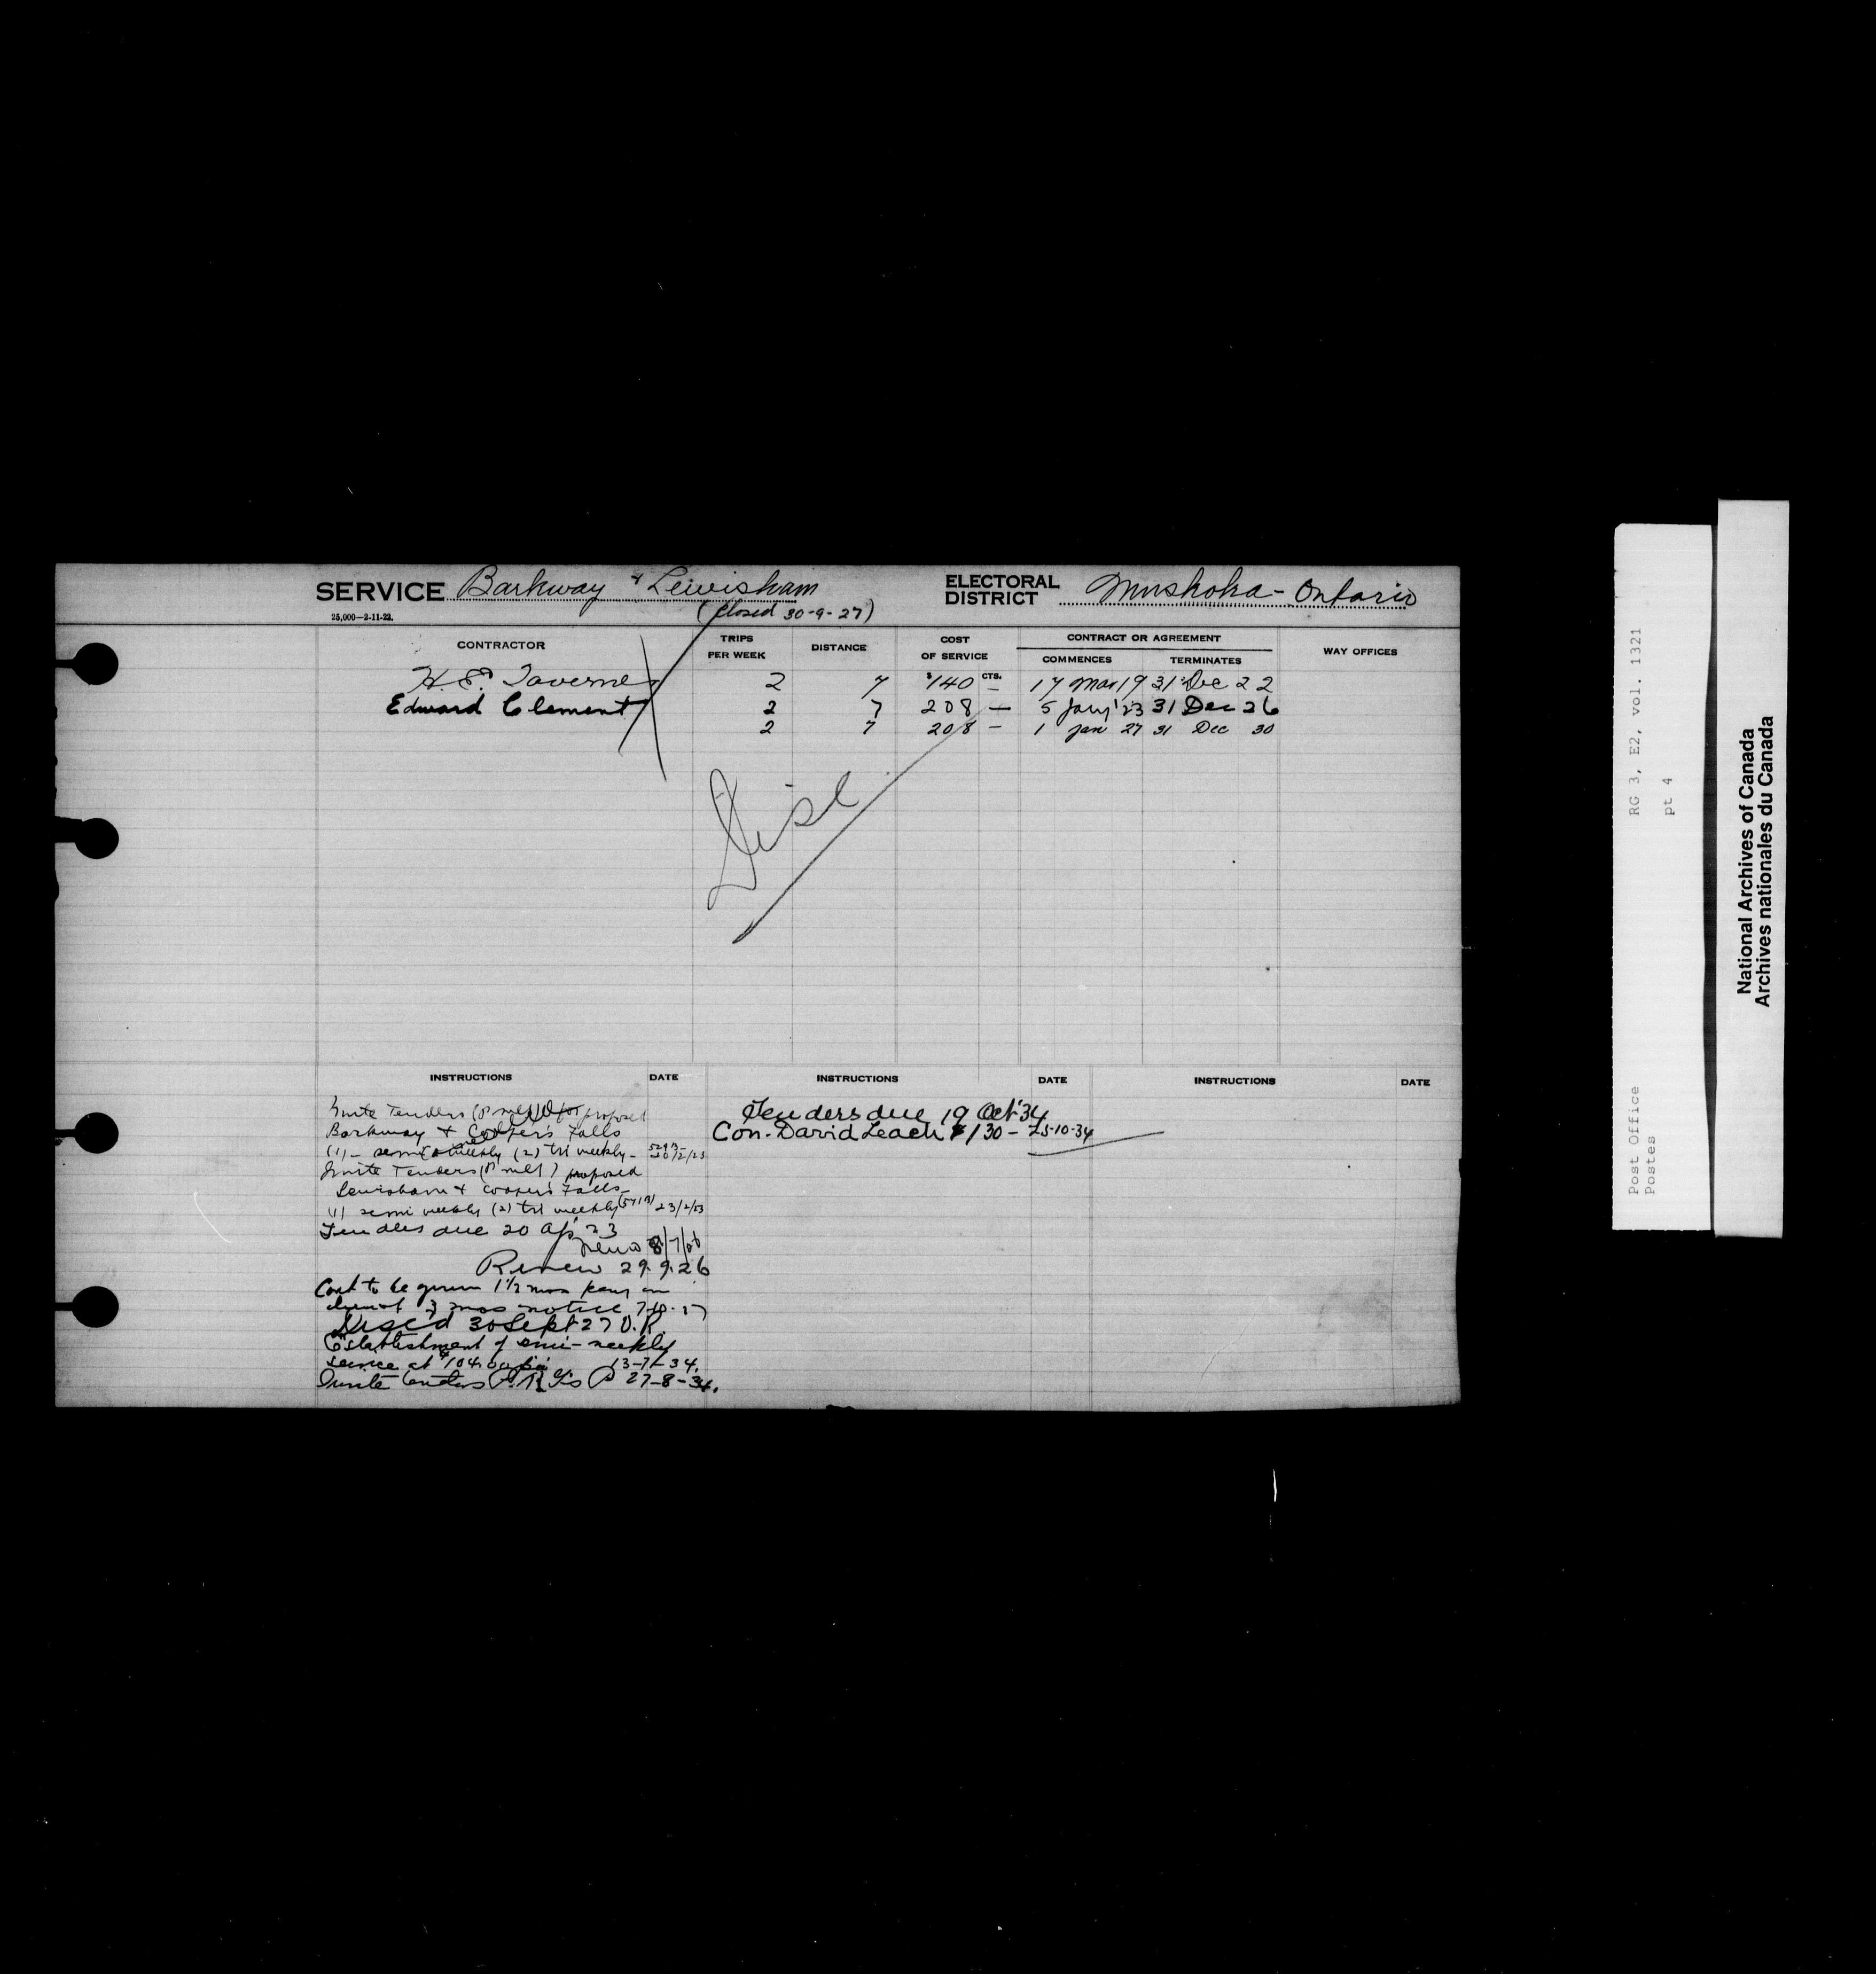 SERVICE Barkway & Lewisham
(Closed 30-9-27)
25,000—2-11-22.
ELECTORAL DISTRICT Muskoka - Ontario
CONTRACTOR TRIPS PER WEEK DISTANCE COST OF SERVICE CONTRACT OR AGREEMENT WAY OFFICES
COMMENCES TERMINATES
H. E. Taverner 2 7 $140 CTS. — 17 Mar 19 31 Dec 22
Edward Clement 2 7 208 — 5 Jany '23 31 Dec 26
2 7 208 — 1 Jan 27 31 Dec 30
Disc
INSTRUCTIONS DATE INSTRUCTIONS DATE INSTRUCTIONS DATE
Invite Tenders for proposed
Barkway & Cooper's Falls
(1) - semi weekly (2) tri weekly -
Invite Tenders proposed
Lewisham & Cooper's Falls -
(1) semi weekly (2) tri weekly
Tenders due 20 Ap. 23
Renew 29.9.26
Cont to be given 1½ mos pay in
3 mos notice
Disc'd 30 Sept 27 O.R.
Establishment of semi-weekly
service at $104.00 13-7-34.
Invite tenders 27-8-34.
Tenders due 19 Oct '34
Con. David Leach $130 - 25-10-34
RG 3, E2, vol. 1321
pt 4
Post Office
Postes
National Archives of Canada
Archives nationales du Canada